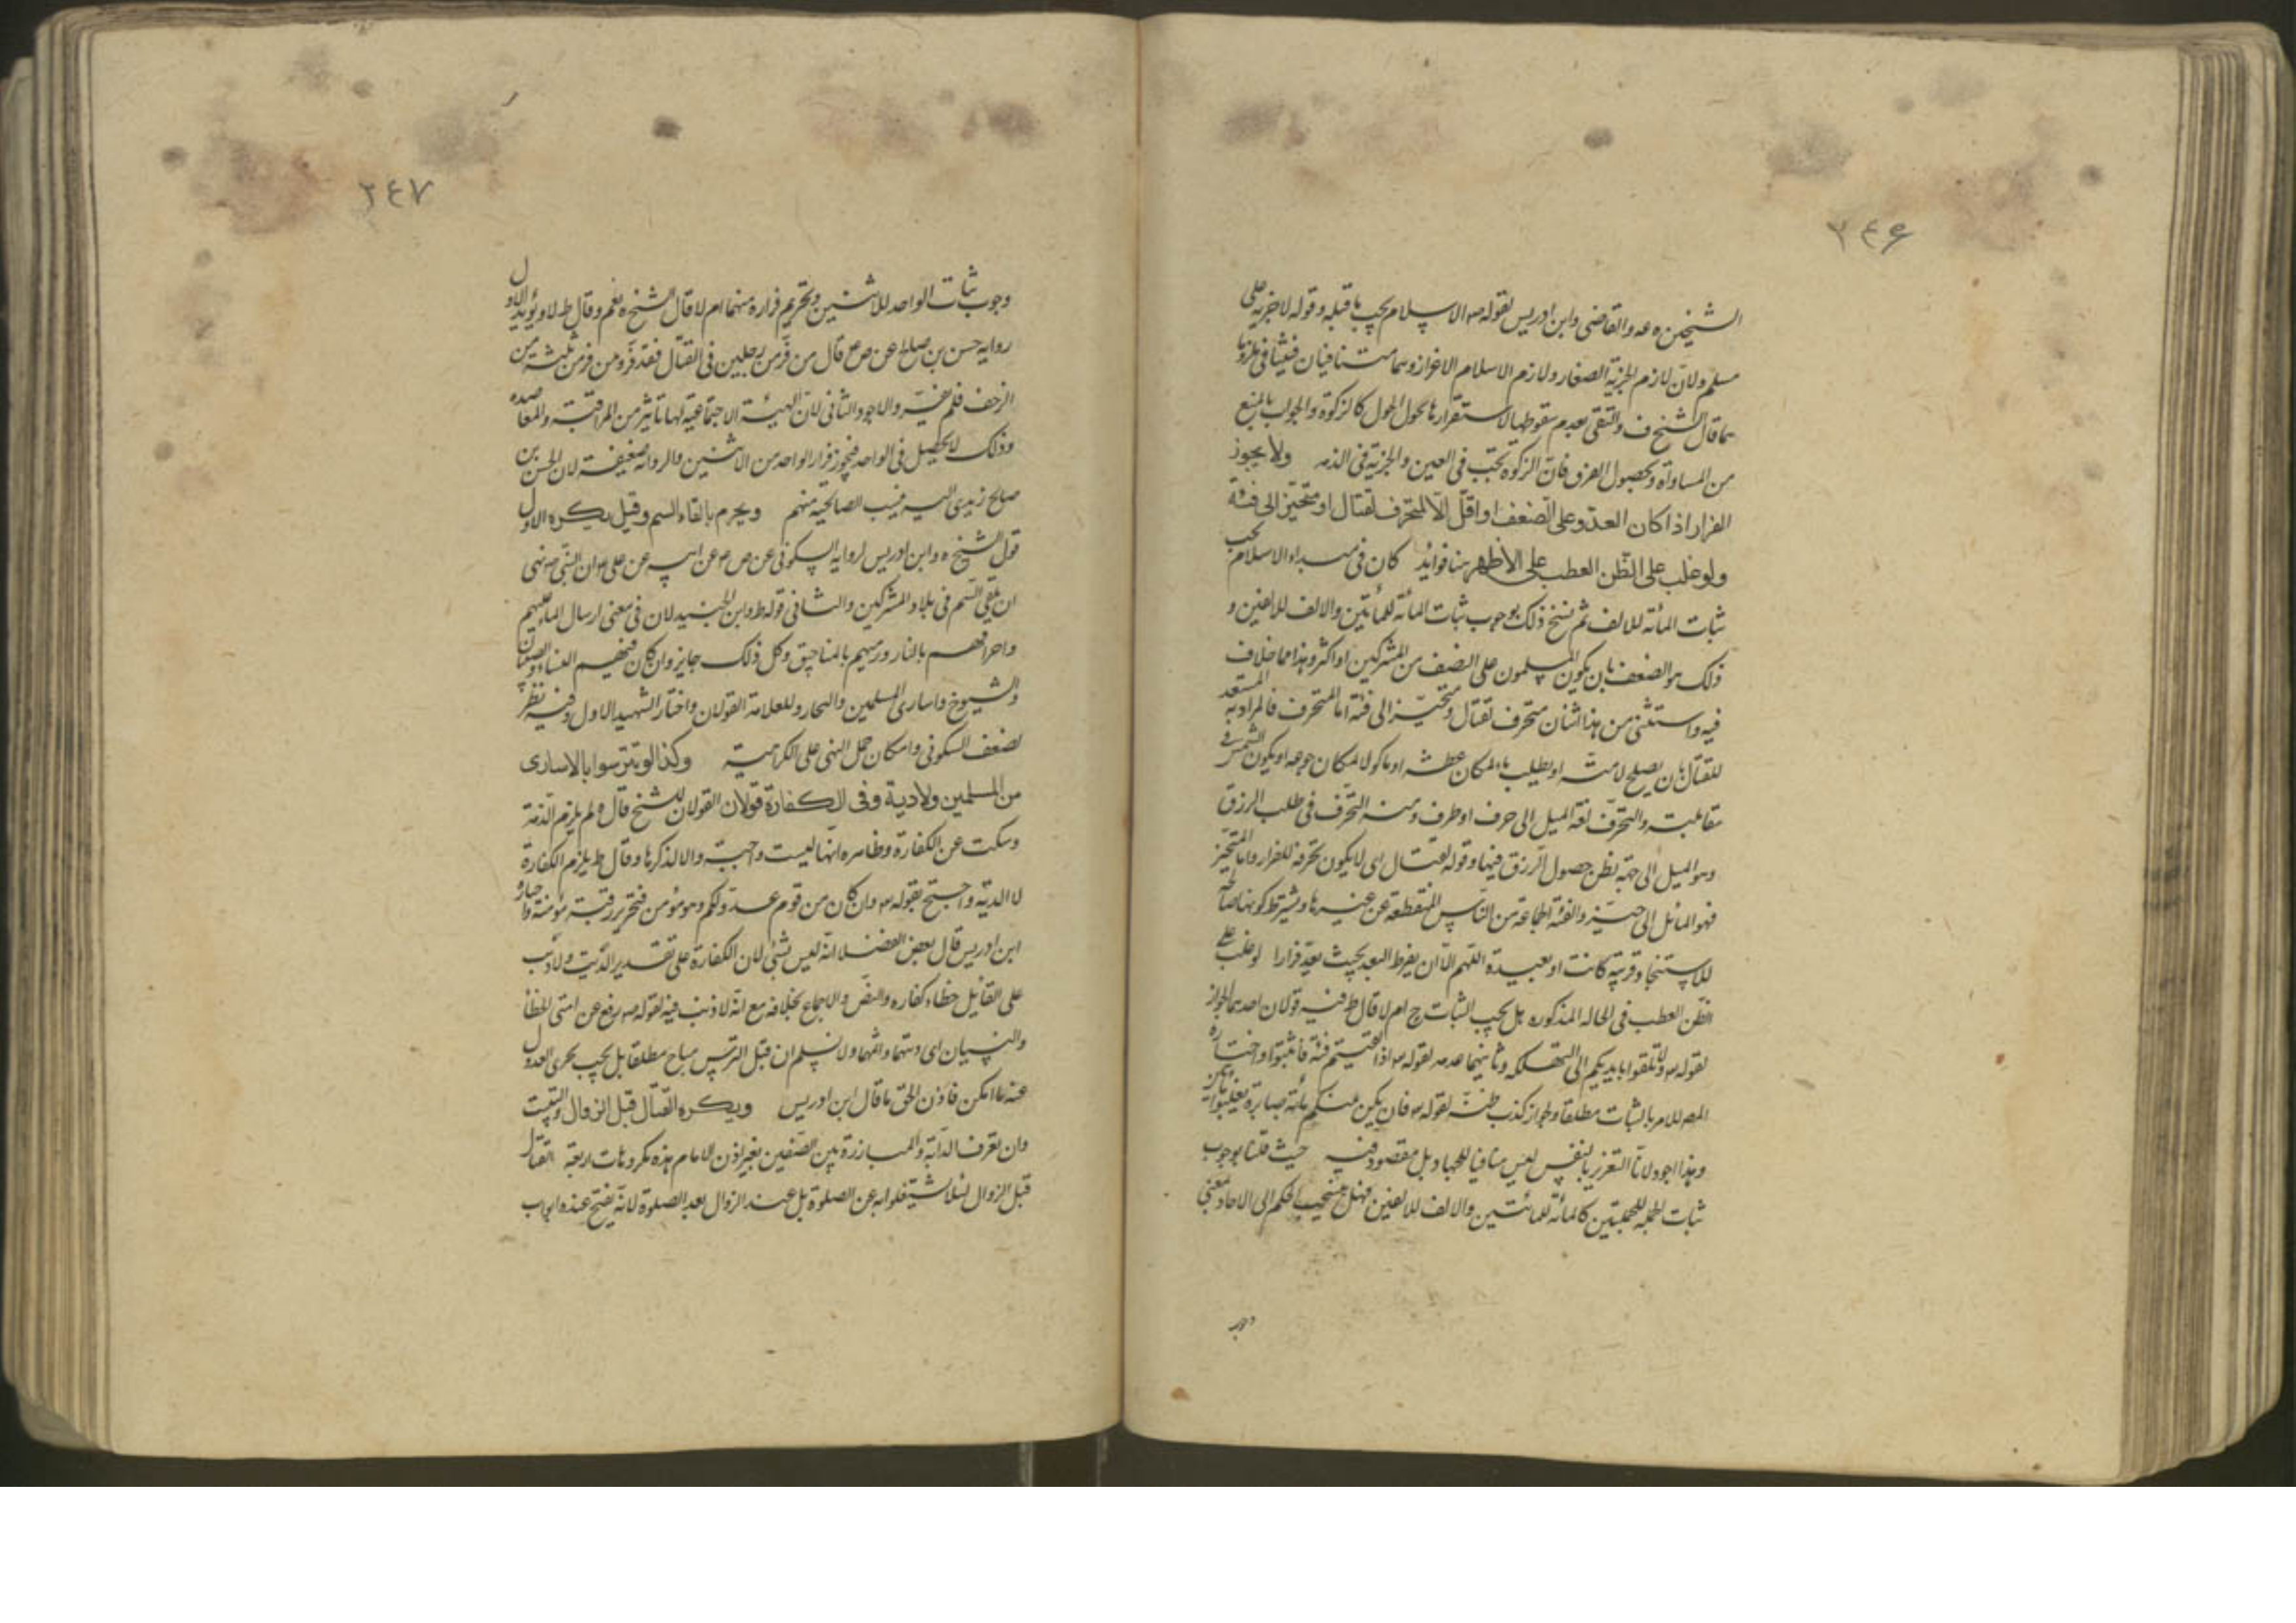 ٢٤۶
الشيخين ره عه والقاضى وابن ادريس لقوله ص الاسلام يجب ما قبله وقوله لا جزية على
مسلم ولان لازم الجزية الصغار ولازم الاسلام الاعزاز وهما متنافيان فيتنافى ملزوما
هما قال الشيخ ف والتقى بعدم سقوطها لاستقرارها بحول الحول كالزكوة والجواب بالمنع
من المساواة وبحصول الفرق فان الزكوة تجب فى العين والجزية فى الذمه ولا يجوز
الفرار اذا كان العدو على الضعف او اقل الا لمتحرف لقتال او متحيز الى فئة
ولو غلب على الظن العطب على الاظهر هنا فوايد كان فى مبداء الاسلام يجب
ثبات المأة للالف ثم نسخ ذلك بوجوب ثبات المأة للمأتين والالف للالفين و
ذلك هو الضعف بان يكون المسلمون على النصف من المشركين او اكثر وهذا مما خلاف
فيه واستثنى من هذا اثنان متحرف لقتال ومتحيز الى فئة اما المتحرف فالمراد به المستعد
للقتال بان يصلح لامته او يطلب ماء لمكان عطشه او ماكولا لمكان جوعه او يكون الشمس فى
مقابلته والتحرف لغة الميل الى حرف او طرف ومنه التحرف فى طلب الرزق
وهو الميل الى جهة يظن حصول الرزق فيها وقوله لقتال اى لا يكون تحرفه للفرار واما المتحيز
فهو المائل الى حيز والفئة الجماعة من الناس المنقطعة عن غيرها ويشترط كونها صالحة
للاستنجاد قريبة كانت او بعيدة اللهم الا ان يفرط البعد بحيث يعد فرارا لو غلب على
الظن العطب فى الحاله المذكوره هل يجب الثبات ح ام لا قال ط فيه قولان احدهما الجواز
لقوله تع ولا تلقوا بايديكم الى التهلكه وثانيهما عدمه لقوله تع اذا لقيتم فئة فاثبتوا واختاره
المص للامر بالثبات مطلقا ولجواز كذب ظنه لقوله تع فان يكن منكم مأة صابرة يغلبوا مأتين
وهذا اجود لان التعزير بالنفس ليس منافيا للجهاد بل مقصود فيه حيث قلنا بوجوب
ثبات الجملة للجملتين كالمأة للمأتين والالف للالفين فهل ينسحب الحكم الى الاحاد بمعنى
وجوب
٢٤٧
وجوب ثبات الواحد للاثنين وتحريم فراره منهما ام لا قال الشيخ ره نعم وقال ط لا ويؤيد الاول
روايه حسن بن صالح عن ص ع قال من فر من رجلين فى القتال فقد فر ومن فر من ثلثة من
الزحف فلم يفر والاجود الثانى لان الهيئة الاجتماعية لها تأثير من المراقبة والمعاضده
وذلك لا يحصل فى الواحد فيجوز فرار الواحد من الاثنين والروايه ضعيفة لان الحسن بن
صالح زيدى اليه ينسب الصالحية منهم ويحرم بالقاء السم وقيل يكره الاول
قول الشيخ ره وابن ادريس لروايه السكونى عن ص ع عن ابيه عن على ع ان النبى ص نهى
ان يلقى السم فى بلاد المشركين والثانى قوله ط وابن الجنيد لان فى معنى ارسال الماء عليهم
واحراقهم بالنار ورميهم بالمناجيق وكل ذلك جايز وان كان فيهم النساء والصبيان
والشيوخ واسارى المسلمين والتجار وللعلامة القولان واختار الشهيد الاول وفيه نظر
لضعف السكونى وامكان حمل النهى على الكراهية وكذا لو تترسوا بالاسارى
من المسلمين ولا دية وفى الكفارة قولان القولان للشيخ قال ه لم يلزم الدية
وسكت عن الكفارة وظاهره انها ليست واجبة والا لذكرها وقال ط يلزم الكفارة
لا الدية واحتج بقوله تع وان كان من قوم عدو لكم وهو مؤمن فتحرير رقبة مؤمنة واختاره
ابن ادريس قال بعض الفضلا انه ليس بشئ لان الكفارة على تقدير الديت ولا ذنب
على القايل خطاء كفاره والنص والاجماع بخلافه مع انه لا ذنب فيه لقوله ص رفع عن امتى الخطا
والنسيان اى ديتهما واثمهما ولا نسلم ان قتل الترس مباح مطلقا بل يجب تحرى العدول
عنه ما امكن فاذن الحق ما قال ابن ادريس ويكره القتال قبل الزوال والتبييت
وان تعرقب الدابة والمبارزة بين الصفين بغير اذن الامام هذه مكروهات اربعة القتال
قبل الزوال لئلا يشتغلوا به عن الصلوة بل عند الزوال بعد الصلوة لانه يفتح عنده ابواب